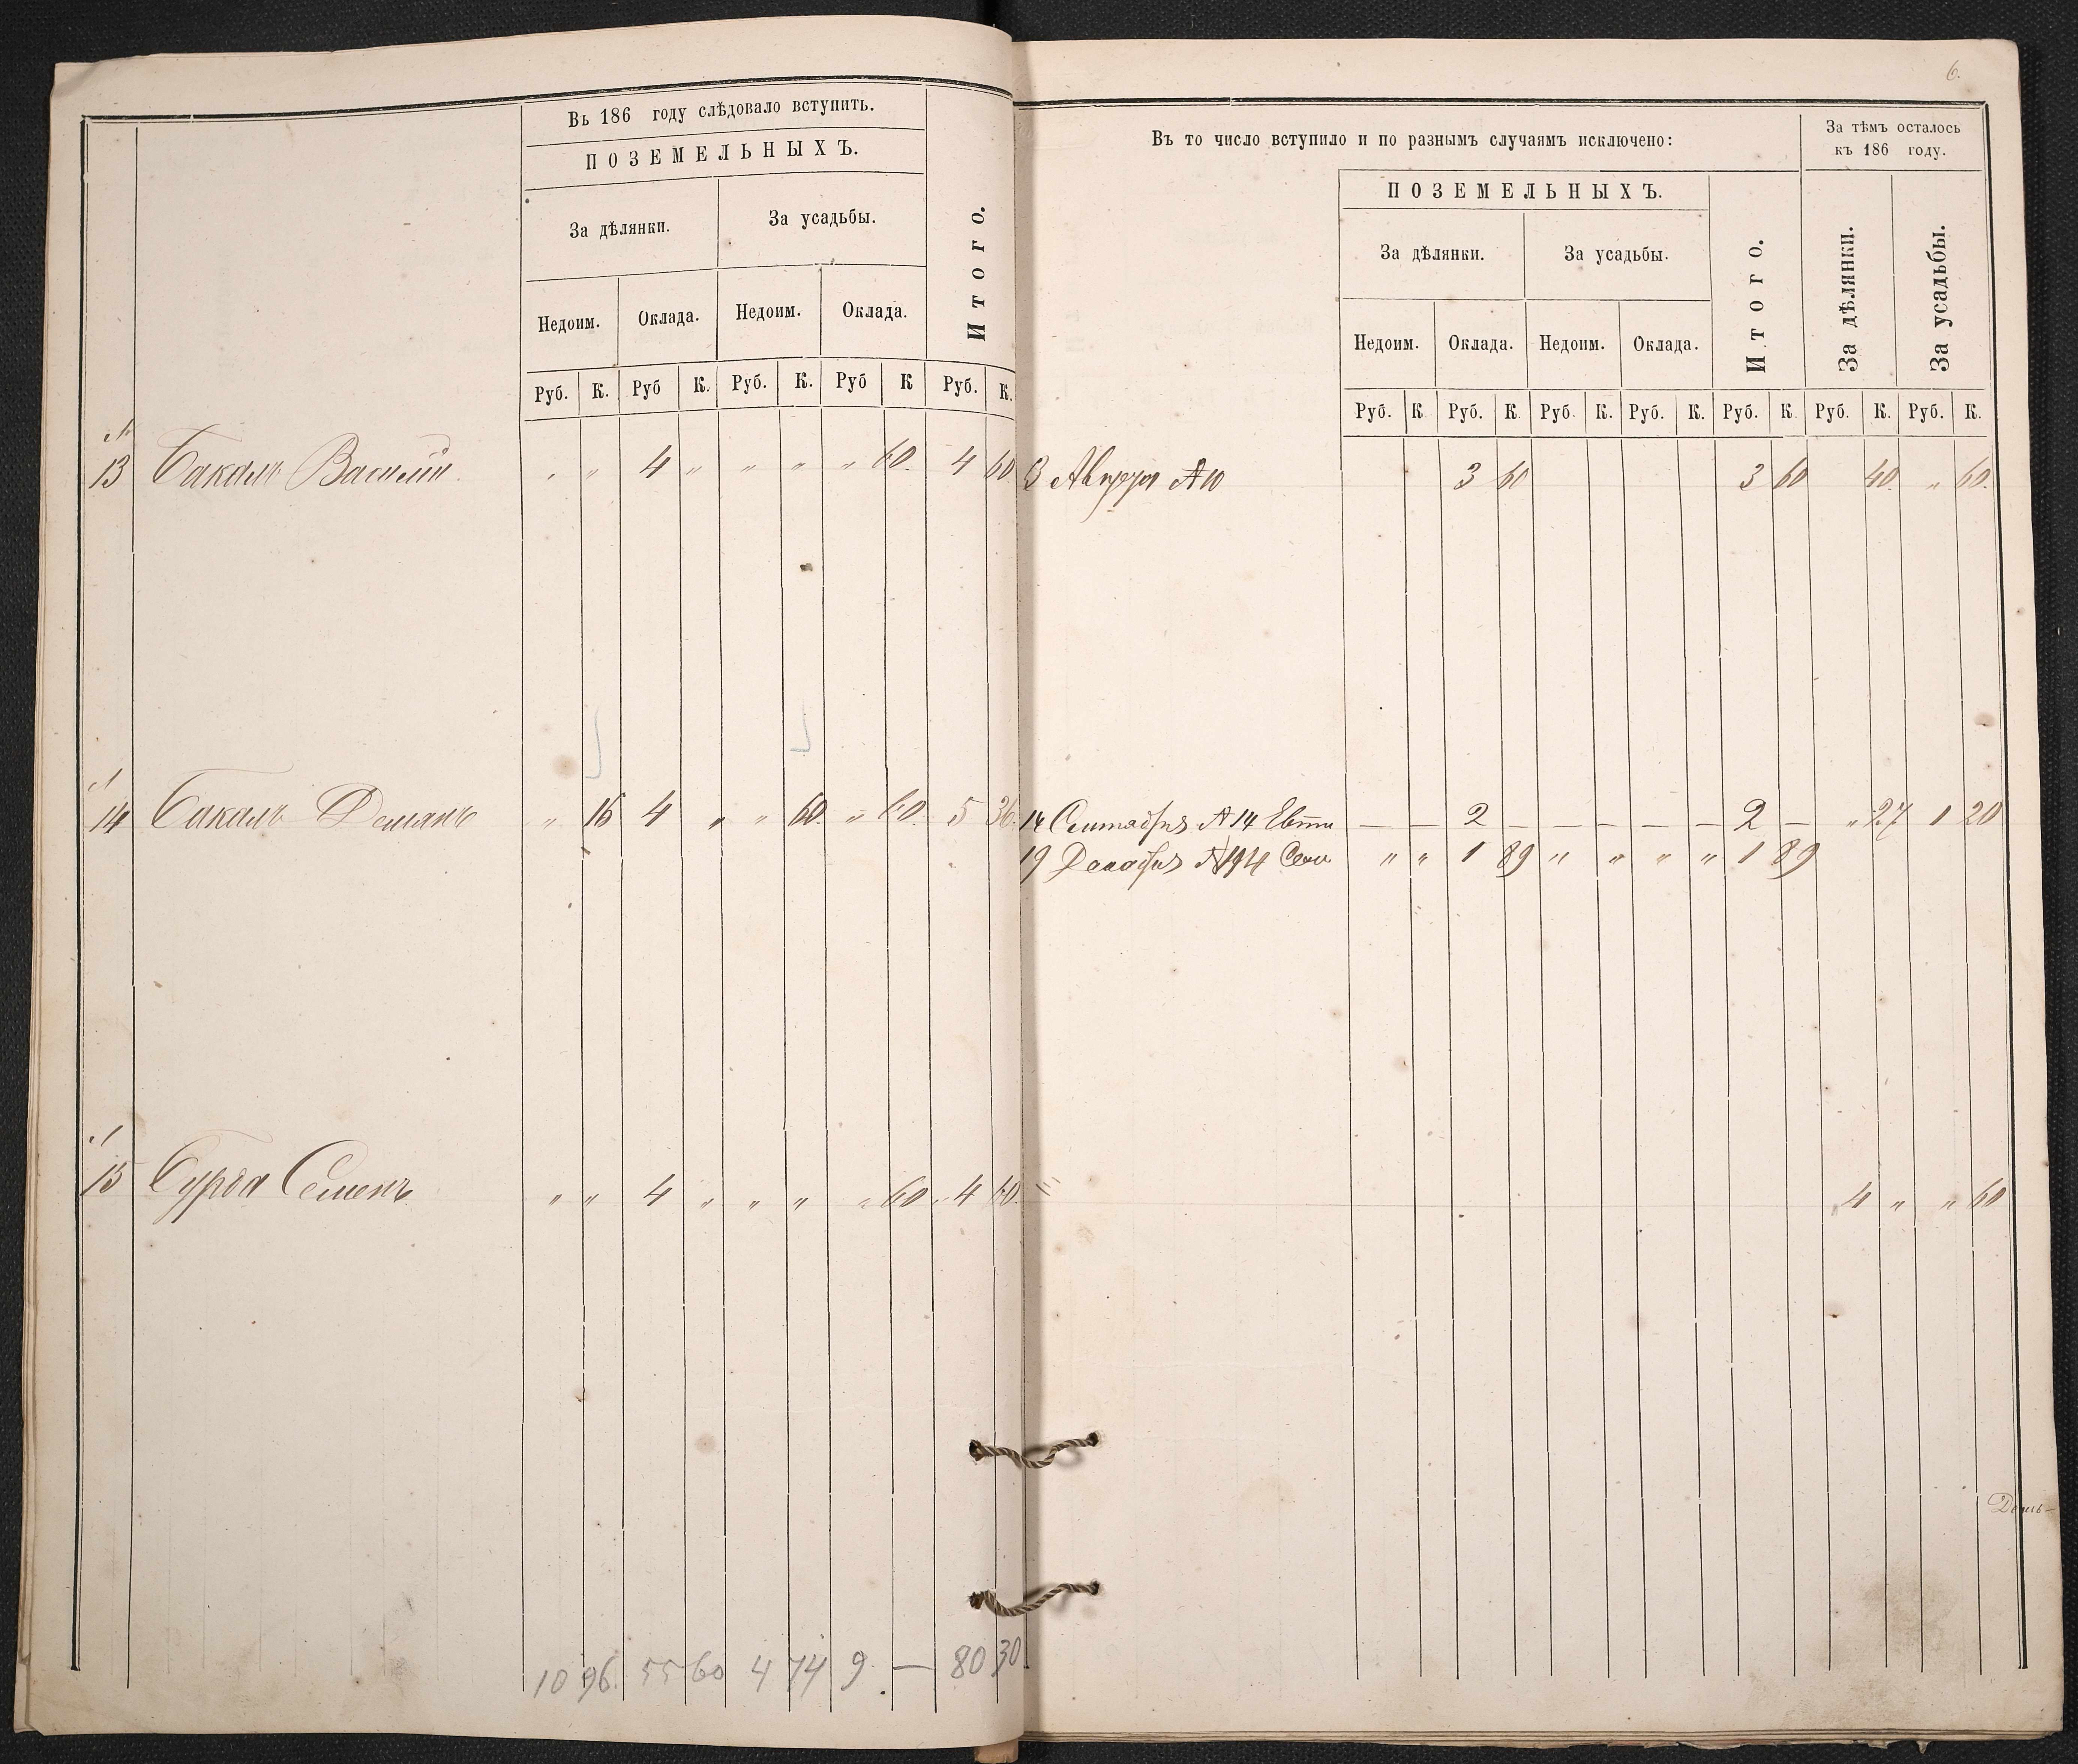 6.
Въ 186 году слѣдовало вступить.
ПОЗЕМЕЛЬНЫХЪ.
За дѣлянки.
За усадьбы.
Итого.
Недоим. Оклада. Недоим. Оклада.
Руб. К. Руб К. Руб. К. Руб К Руб. К.
Въ то число вступило и по разнымъ случаямъ исключено:
ПОЗЕМЕЛЬНЫХЪ.
За дѣлянки.
За усадьбы.
Итого.
Недоим. Оклада. Недоим. Оклада.
За тѣмъ осталось
къ 186 году.
За дѣлянки.
За усадьбы.
Руб. К. Руб. К. Руб. К. Руб. К. Руб. К. Руб. К. Руб. К.
№
13 Бакалъ Василій " " 4 " " " " 60. 4 60 3 60 3 60 40. " 60.
14 Бакалъ Демянъ " 16 4 " " 60. " 60. 5 36. 14 Сентября №14 — — 2 — — — — — 2 — " 27 1 20
19 Декабря " " 1 89 " " " " 1 89
15 Бурда Семенъ " " 4 " " " " 60 " 4 60. 4 " " 60
10 96. 55 60 4 74 9 — 80 30